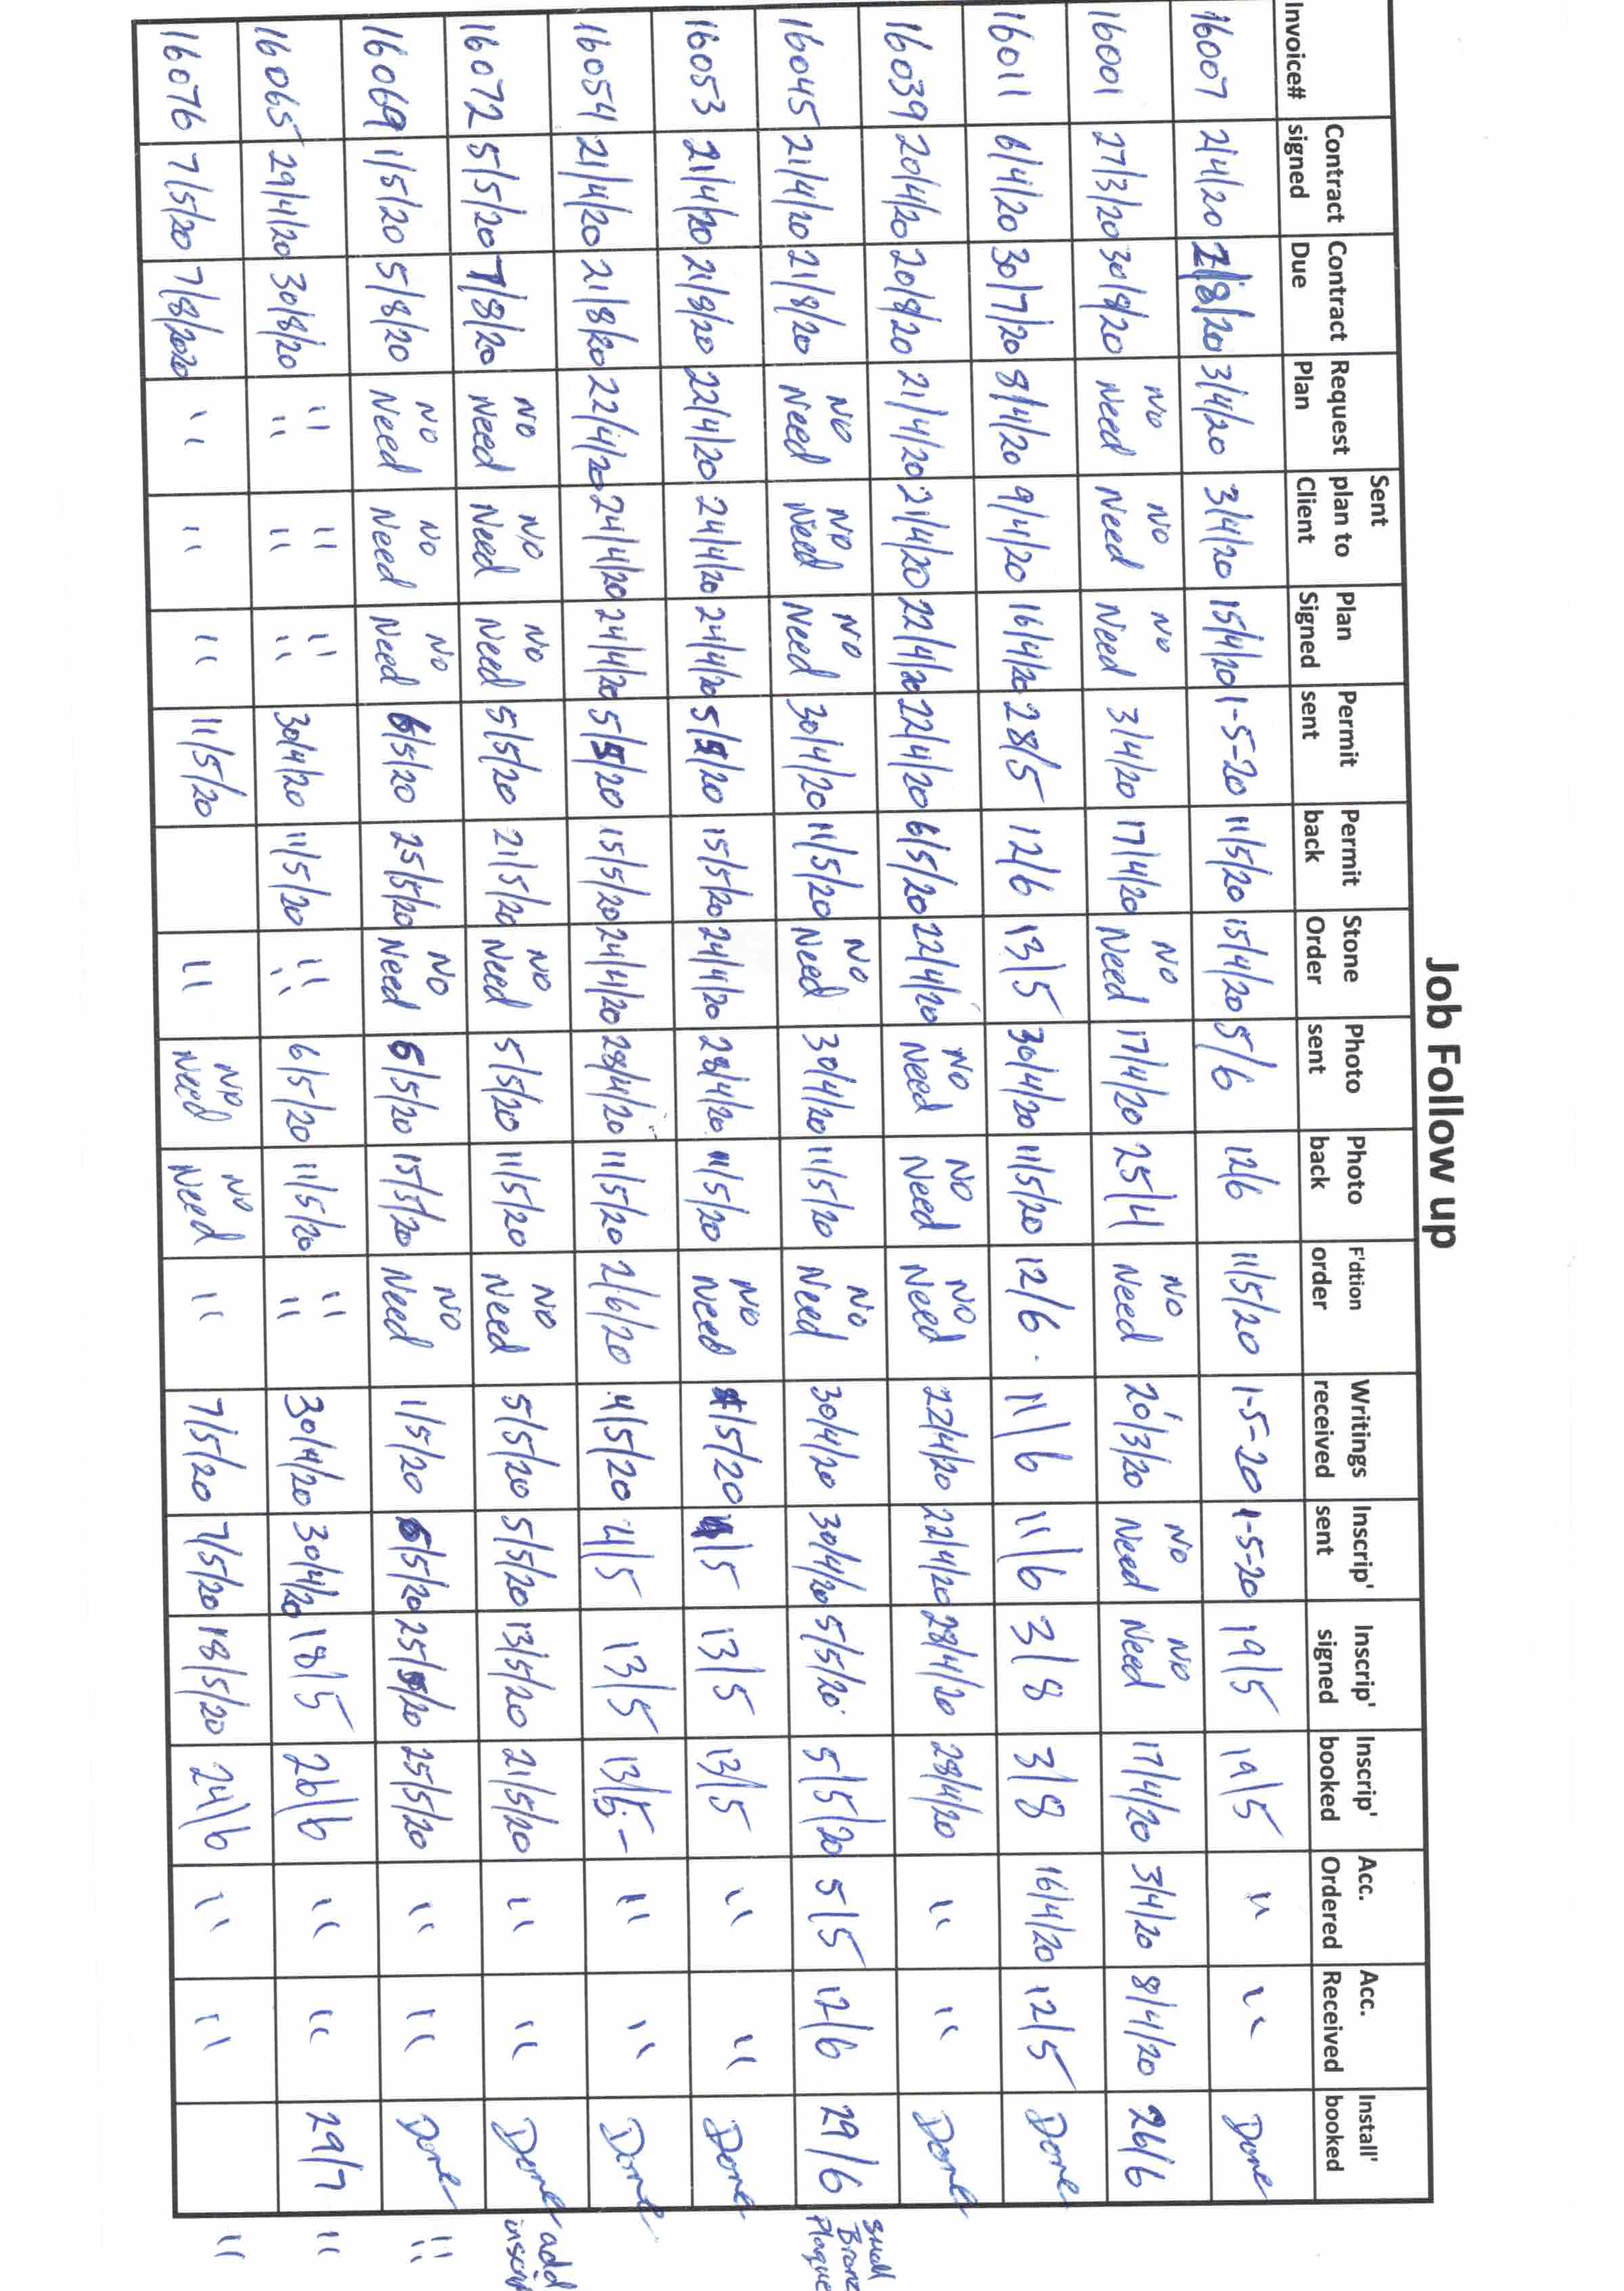 Job Follow up
Invoice# Contract signed Contract Due Request Plan Sent plan to Client Plan Signed Permit sent Permit back Stone Order Photo sent Photo back F'dtion order Writings received Inscrip' sent Inscrip' signed Inscrip' booked Acc. Ordered Acc. Received Install' booked
16007 2/4/20 2/8/20 3/4/20 3/4/20 15/4/20 1-5-20 11/5/20 15/4/20 5/6 12/6 11/5/20 1-5-20 1-5-20 19/5 19/5 " " Done
16001 27/3/20 30/8/20 No Need No Need No Need 3/4/20 17/4/20 No Need 17/4/20 25/4 No Need 20/3/20 No Need No Need 17/4/20 3/4/20 8/4/20 26/6
16011 6/4/20 30/7/20 8/4/20 9/4/20 16/4/20 28/5 12/6 13/5 30/4/20 11/5/20 12/6 11/6 11/6 3/8 3/8 16/4/20 12/5 Done
16039 20/4/20 20/8/20 21/4/20 21/4/20 22/4/20 22/4/20 6/5/20 22/4/20 No Need No Need No Need 22/4/20 22/4/20 28/4/20 28/4/20 " " Done
16045 21/4/20 21/8/20 No Need No Need No Need 30/4/20 11/5/20 No Need 30/4/20 11/5/20 No Need 30/4/20 30/4/20 5/5/20 5/5/20 5/5 12/6 29/6 Small Bronz Plaque
16053 21/4/20 21/8/20 22/4/20 24/4/20 24/4/20 5/5/20 15/5/20 24/4/20 28/4/20 11/5/20 No Need 4/5/20 4/5 13/5 13/5 " " Done
16054 21/4/20 21/8/20 22/4/20 24/4/20 24/4/20 5/5/20 15/5/20 24/4/20 28/4/20 11/5/20 2/6/20 4/5/20 4/5 13/5 13/5- " " Done
16072 5/5/20 7/8/20 No Need No Need No Need 5/5/20 21/5/20 No Need 5/5/20 11/5/20 No Need 5/5/20 5/5/20 13/5/20 21/5/20 " " Done add inscrip
16069 1/5/20 5/8/20 No Need No Need No Need 6/5/20 25/5/20 No Need 6/5/20 15/5/20 No Need 1/5/20 6/5/20 25/5/20 25/5/20 " " Done " "
16065 29/4/20 30/8/20 " " " " " " 30/4/20 11/5/20 " " 6/5/20 11/5/20 " " 30/4/20 30/4/20 18/5 26/6 " " 29/7 "
16076 7/5/20 7/8/2020 " " " 11/5/20 " No Need No Need " 7/5/20 7/5/20 18/5/20 24/6 " " "